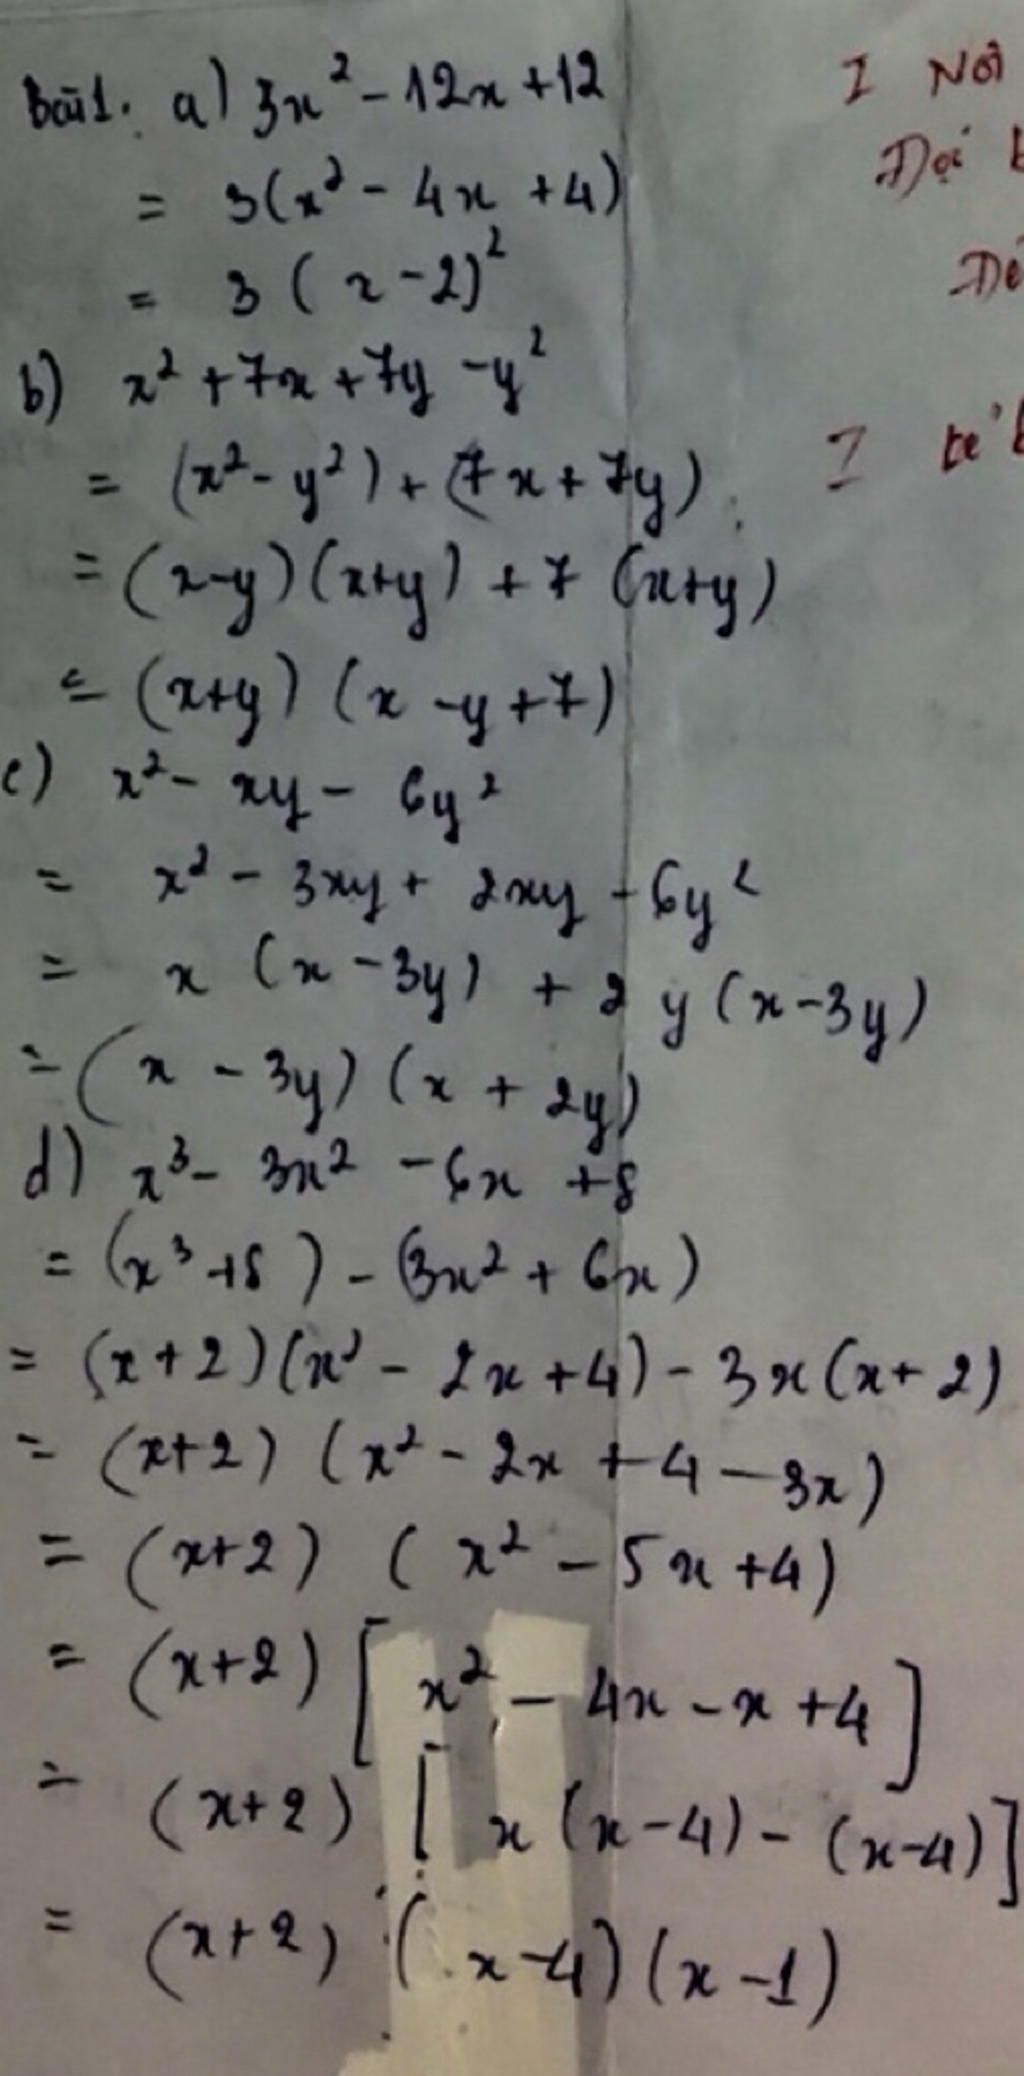 Bài 1: a) 3x² - 12x + 12
= 3(x² - 4x + 4)
= 3 ( x - 2)²
b) x² + 7x + 7y - y²
= (x² - y²) + (7x + 7y)
= (x-y)(x+y) + 7 (x+y)
= (x+y) (x - y + 7)
c) x² - xy - 6y²
= x² - 3xy + 2xy - 6y²
= x (x - 3y) + 2y(x - 3y)
= (x - 3y) (x + 2y)
d) x³ - 3x² - 6x + 8
= (x³ + 8) - (3x² + 6x)
= (x + 2)(x² - 2x + 4) - 3x(x + 2)
= (x+2) (x² - 2x + 4 - 3x)
= (x+2) ( x² - 5x + 4)
= (x+2) [ x² - 4x - x + 4 ]
= (x+2) [ x (x-4) - (x-4)]
= (x+2) ( x-4) (x-1)
I Nôi
Đại
I